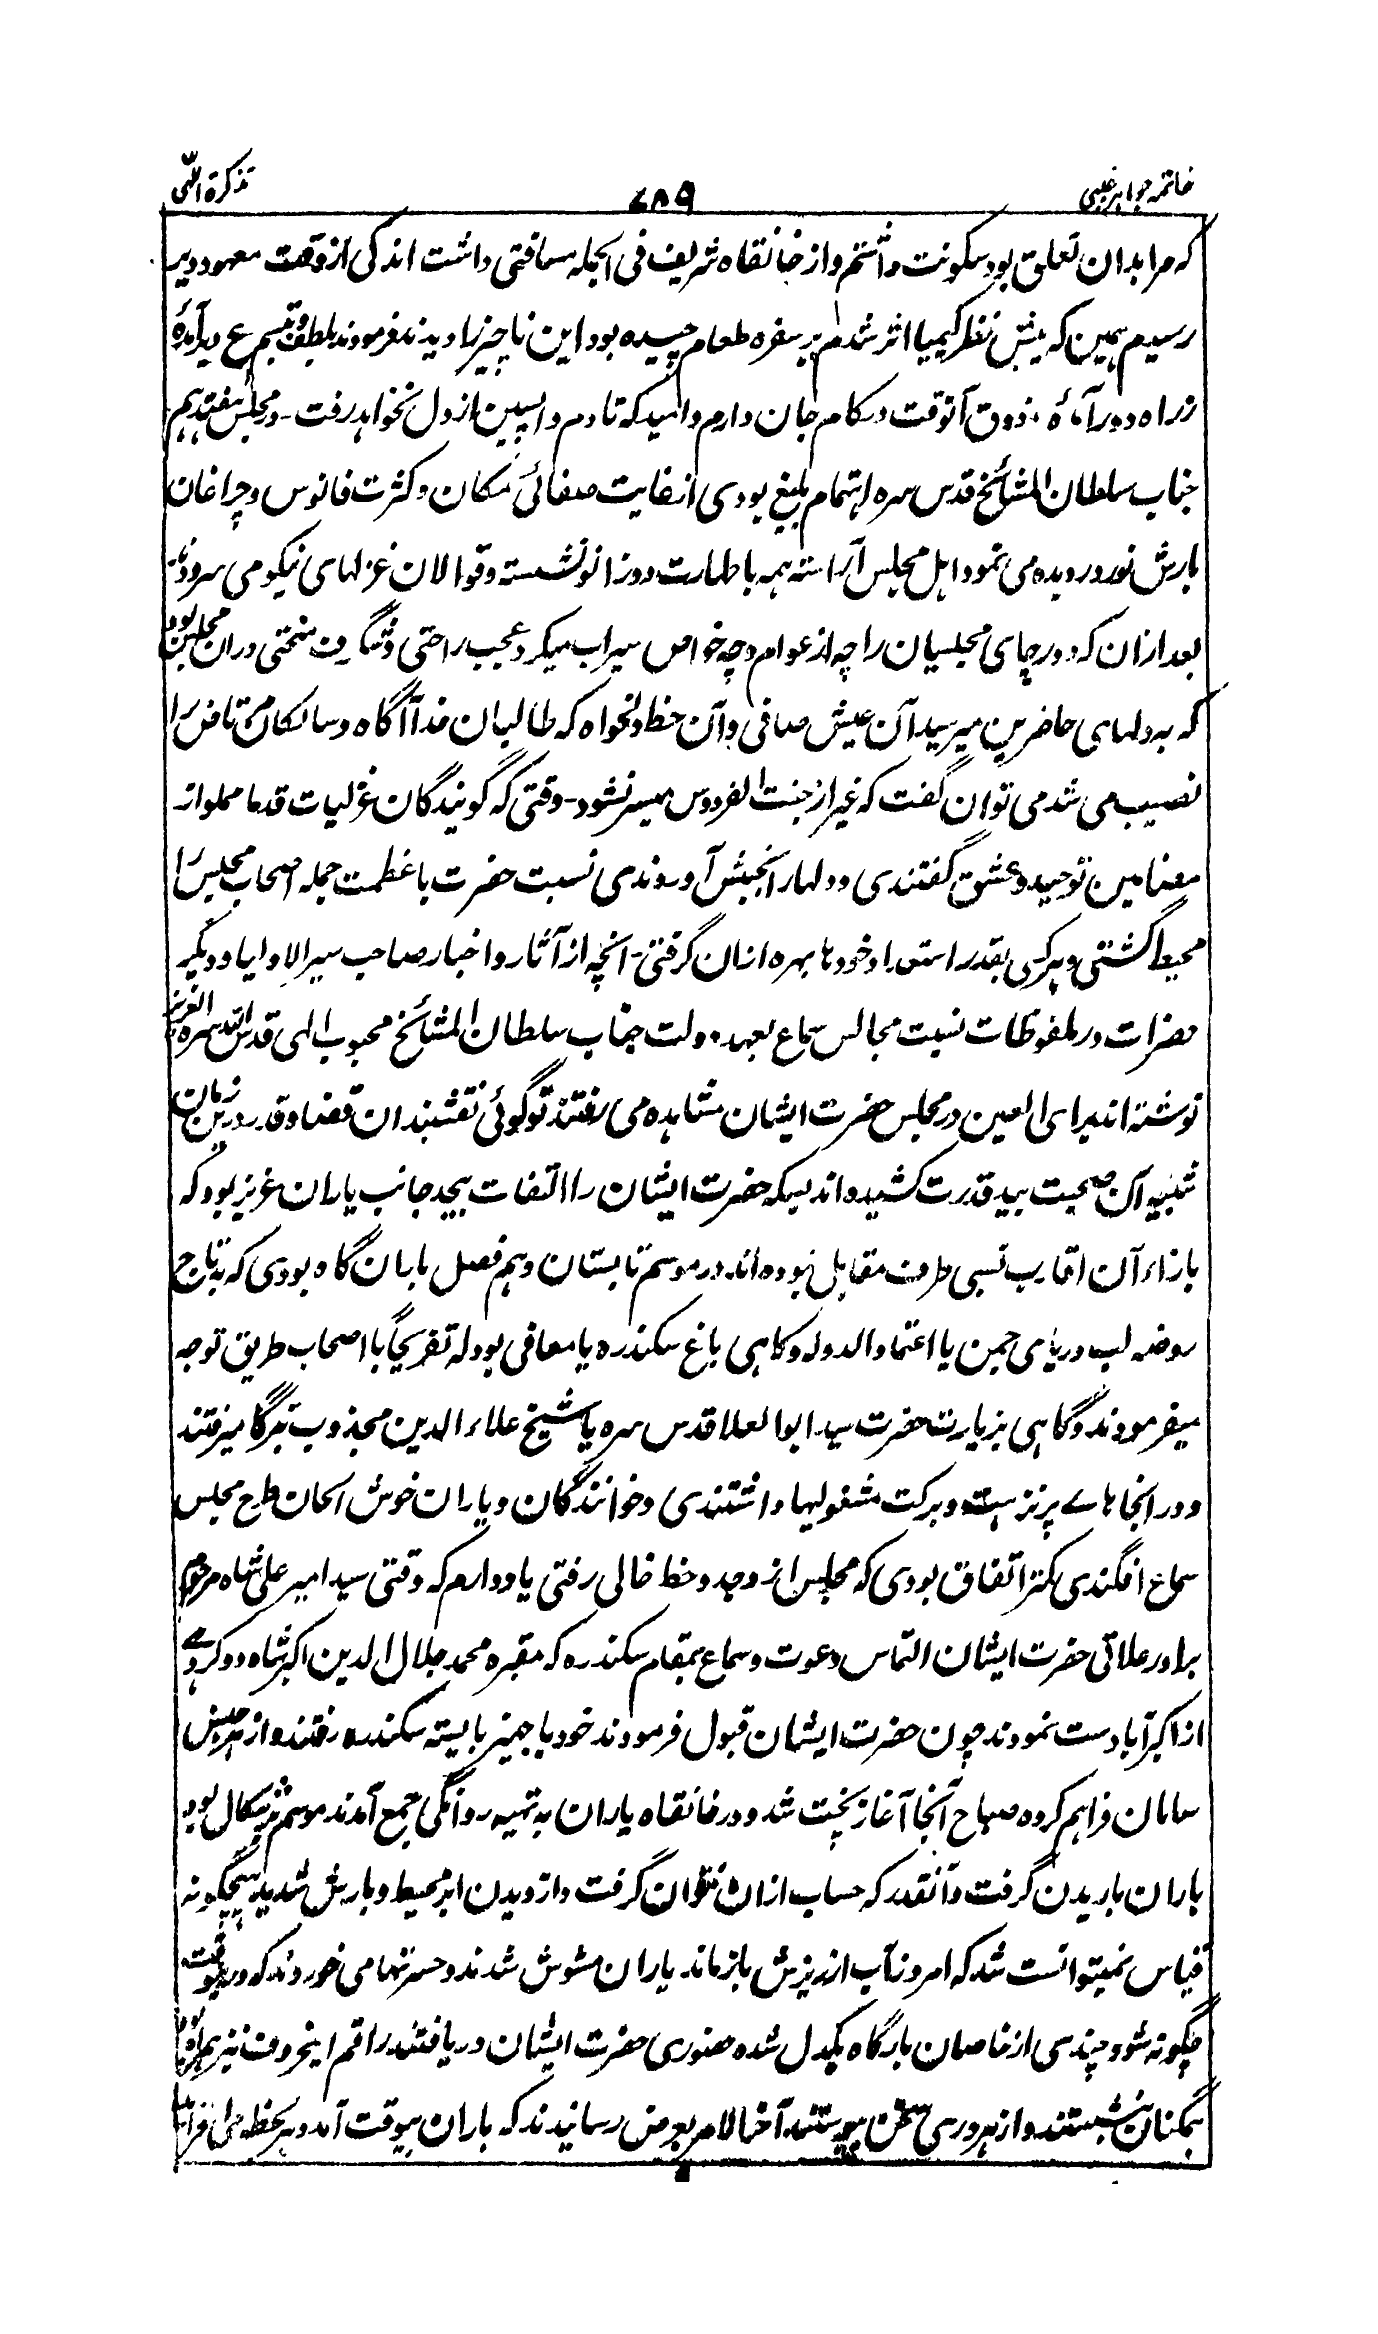 خاتمہ جواہر غیبی
۷۸۹
تذکرۃ اللہی
کہ مرا بدان تعلق بود سکونت داشتم و از خانقاہ شریف فی الجملہ مسافتی داشت اندکی از وقت معہود دیر
رسیدم ہمین کہ پیش نظر کیمیا اثر شدم بر سفرہ طعام چیدہ بود این ناچیز را دیدند فرمودند بلطف و تبسم ع دیر آمدۂ
ز راہ دور آمدۂ ذوق آنوقت در کام جان دارم و امید کہ تا دم واپسین از دل نخواہد رفت ۔ در مجلس ہفتدہم
جناب سلطان المشائخ قدس سرہ اہتمام بلیغ بودی از غایت صفائی مکان و کثرت فانوس و چراغان
بارش نور در دیدہ می نمود اہل مجلس آراستہ ہمہ با طہارت دو زانو نشستہ و قوالان غزلہای نیکو می سرودند
بعد ازان کہ دور چای مجلسیان را چہ از عوام و چہ خواص سیراب میکرد عجب راحتی و شگرف منحتی دران مجلس بود
کہ بہ دلہای حاضرین میرسید آن عیش صافی و آن حظ دلخواہ کہ طالبان خدا آگاہ و سالکان مرتاض را
نصیب می شد می توان گفت کہ غیر از جنت الفردوس میسر نشود ۔ وقتی کہ گویندگان غزلیات قدما مملو از
مضامین توحید و عشق گفتندی و دلہا را بجنبش آوردندی نسبت حضرت با عظمت جملہ اصحاب مجلس را
محیط گشتی و ہر کس بقدر استعداد خودہا بہرہ ازان گرفتی ۔ انچہ از آثار و اخبار صاحب سیر الاولیا و دیگر
حضرات در ملفوظات نسبت مجالس سماع بعہد دولت جناب سلطان المشائخ محبوب الہی قدس اللہ سرہ العزیز
نوشتہ اند برای العین در مجلس حضرت ایشان مشاہدہ می رفتند تو گوئی نقشبندان قضا و قدر درین زمان
شبیہ آن صحبت بید قدرت کشیدہ اند بسکہ حضرت ایشان را التفات بیحد جانب یاران عزیز بود کہ
بازاء آن اقارب نسبی طرف مقابل نبودہ اند در موسم تابستان و ہم فصل باران گاہ بودی کہ بہ تاج
روضہ لب دریای جمن یا اعتماد الدولہ و گاہی باغ سکندرہ یا معافی بودلہ تفریحاً با اصحاب طریق توجہ
میفرمودند و گاہی بزیارت حضرت سید ابو العلا قدس سرہ یا شیخ علاء الدین مجذوب تبرکا میرفتند
و در انجاہاے پر نزہت و برکت مشغولیہا داشتندی و خوانندگان و یاران خوش الحان طرح مجلس
سماع افگندی کمتر اتفاق بودی کہ مجلس از وجد و حظ خالی رفتی یاد دارم کہ وقتی سید امیر علی شاہ مرحوم
برادر علاتی حضرت ایشان التماس دعوت و سماع بمقام سکندرہ کہ مقبرہ محمد جلال الدین اکبر شاہ دو کروہے
از اکبرآباد ست نمودند چون حضرت ایشان قبول فرمودند خود با جمیز بایستہ سکندرہ رفتند و از ہر جنس
سامان فراہم کردہ صباح آنجا آغاز پخت شد و در خانقاہ یاران بہ تہیہ روانگی جمع آمدند موسم بر شکال بود
باران باریدن گرفت و آنقدر کہ حساب ازان نتوان گرفت و از دیدن ابر محیط و بارش شدید ہیچگونہ
قیاس نمیتوانست شد کہ امروز آب از ریزش باز ماند یاران مشوش شدند و حسرتہا می خوردند کہ درینوقت
چگونہ شود چندی از خاصان بارگاہ یکدل شدہ حضوری حضرت ایشان دریافتند راقم اینحروف نیز ہمراہ بود
ہمگنان بنشستند و از ہر دری سخن پیوستند آخر الامر بعرض رسانیدند کہ باران بیوقت آمد و ہر لحظہ